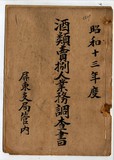 昭和十三年度
酒類賣捌人業務調査書
屏東支局管内